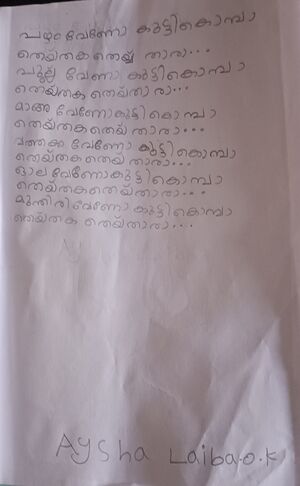 പഴം വേണോ കുട്ടികൊമ്പാ
തെയ്തക തെയ്യ് താരാ...
പുല്ല് വേണാ കുട്ടികൊമ്പാ
തെയ്തക തെയ്താരാ...
മാങ്ങ വേണോ കുട്ടികൊമ്പാ
തെയ്തക തെയ് താരാ...
വത്തക്ക വേണോ കുട്ടികൊമ്പാ
തെയ്തക തെയ് താരാ...
ഓല വേണോ കുട്ടികൊമ്പാ
തെയ്തക തെയ്താരാ...
മുന്തിരി വേണോ കുട്ടികൊമ്പാ
തെയ്തക തെയ്താരാ...
Aysha Laiba.o.k